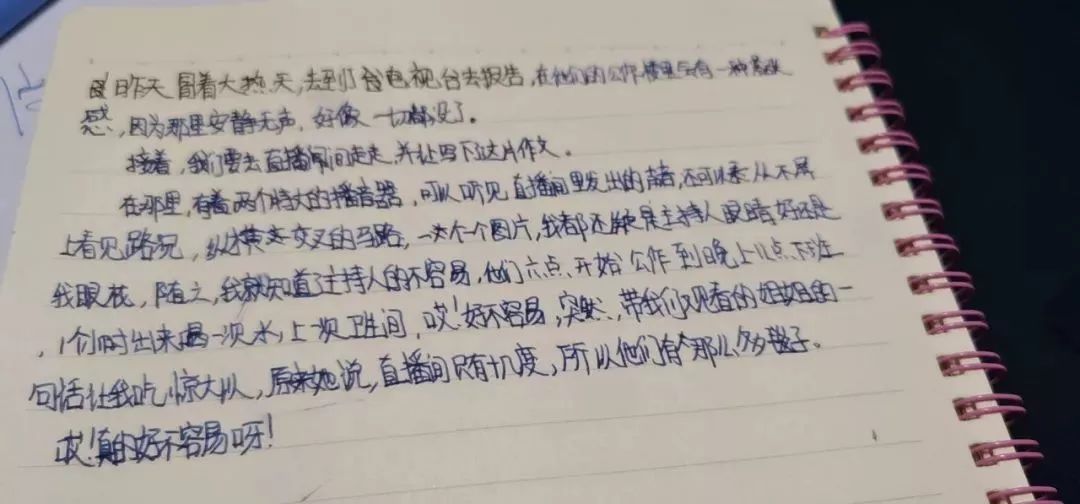 昨天冒着大热天,去到了台电视台去报告,在他们的公作楼里写有一种
感,因为那里安静无声,好像一切都没了。
接着,我们要去直播间间走走,并让写下这片作文。
在那里,有着两个特大的播音器,可以听见直播间里发出的声音,还可以从
上看见路况,纵横交叉的马路,一个个图片,我都主持人眼睛好还是
我眼花,随之,我就知道了主持人的不容易,他们六点开始公作到晚上八点下班
,1个小时出来喝一次水,上一次卫生间,哎!好不容易,突然,带我们观看的姐姐的一
句话让我吃惊大从,原来她说,直播间只有十几度,所以他们有个那么多毯子。
哎!真的好不容易呀!